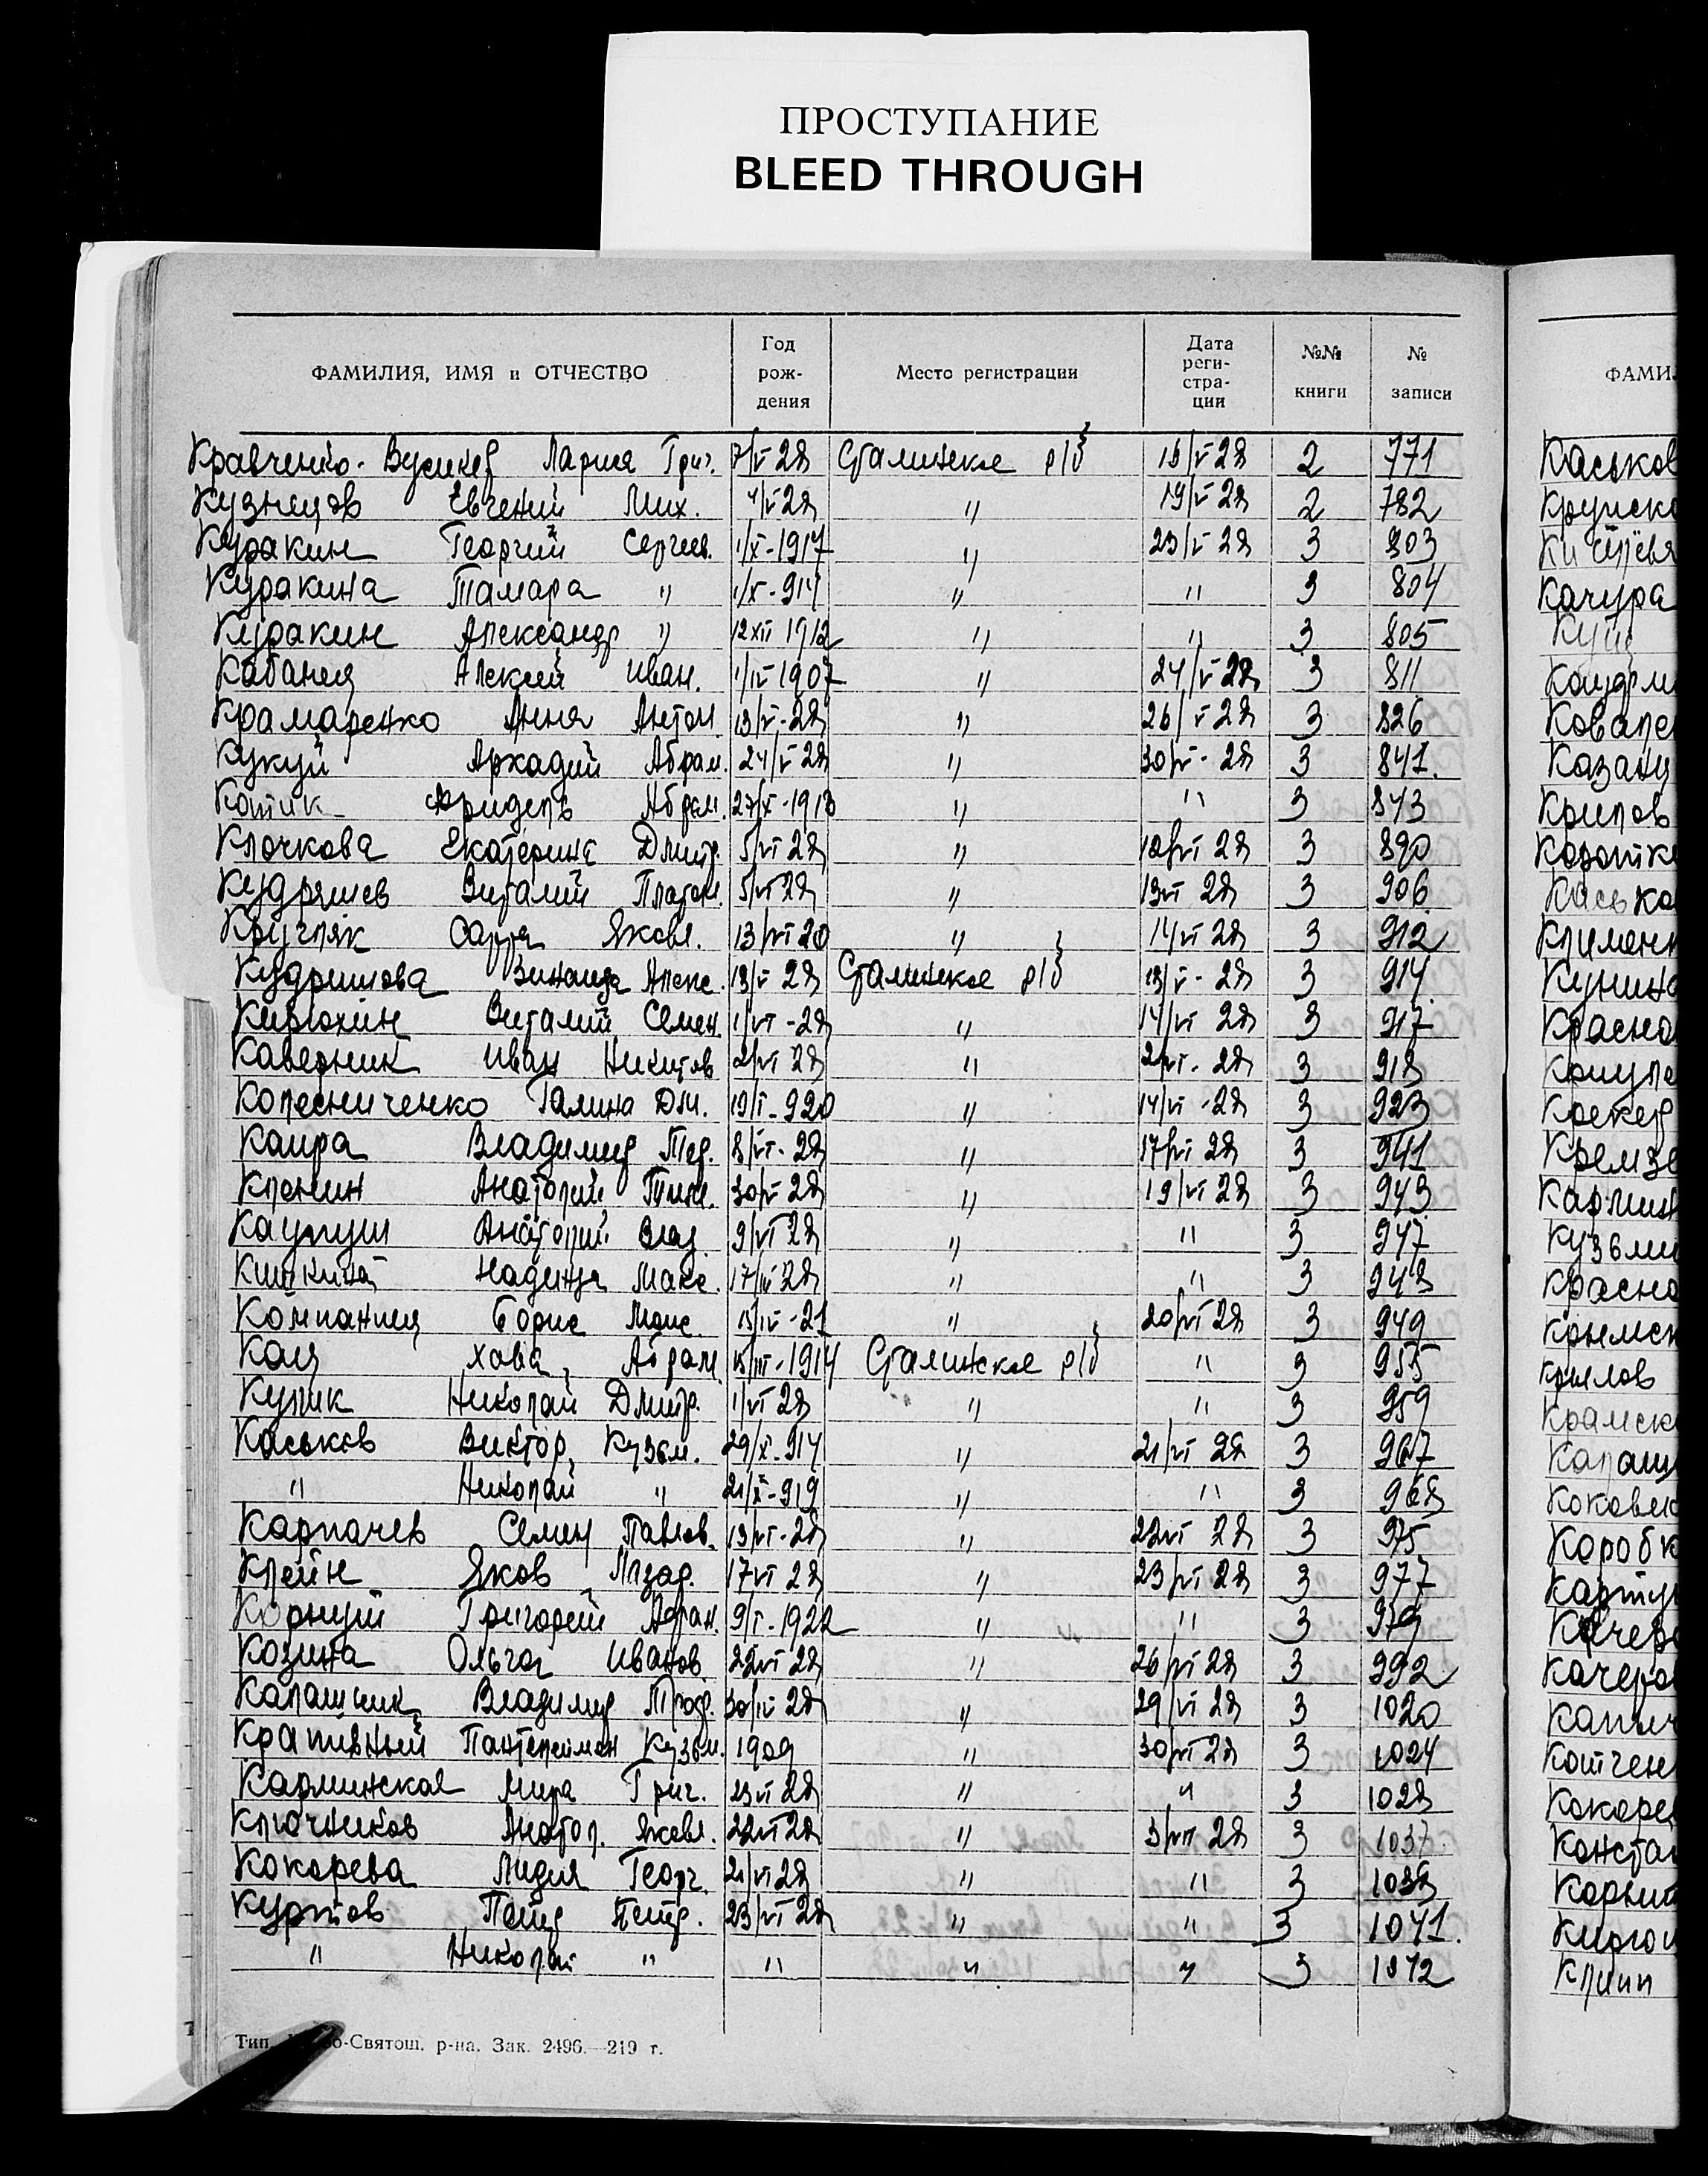 ПРОСТУПАНИЕ
BLEED THROUGH
ФАМИЛИЯ, ИМЯ и ОТЧЕСТВО Год рождения Место регистрации Дата регистрации №№ книги № записи
Кравченко- Лариса Григ. 7/V 28 Сталинское р/б 2 771
Кузнецов Евгений Мих. 4/V 28 " 19/V 28 2 782
Куракин Георгий Сергеев. 1/X-1917 " 23/V 28 3 803
Куракина Тамара " 1/X-914 " " 3 804
Куракин Александр " 12 XII 1912 " " 3 805
Кабанец Алексей Иван. 1/IV 1907 " 24/V 28 3 811
Крамаренко Анна Антон. 13/V-28 " 26/V 28 3 826
Кукуй Аркадий Абрам. 24/V 28 " 30/V-28 3 841.
Котик Фридель Абрам. 27/X-1913 " " 3 843
Клочкова Екатерина Дмитр. 5/VI 28 " 12/VI 28 3 890
Кудряшев Виталий Платон. 5/VI 28 " 13 VI 28 3 906
Кругляк Сарра Яковл. 13/VI 20 " 14 VI 28 3 912
Кудряшова Зинаида Алекс. 13/V 28 Сталинское р/б 13/V-28 3 914
Кирюхин Виталий Семен. 1/VI-28 " 14/VI 28 3 917
Каверник Иван Никитов 2/VI 28 " 2/VI-28 3 918
Колесниченко Галина Дм. 19/I-920 " 14/VI-28 3 923
Каира Владимир Фед. 8/VI-28 " 17/VI 28 3 941
Кленин Анатолий 30/V 28 " 19/VI 28 3 943
Анатолий Влад. 9/VI 28 " " 3 947
Кишкина Надежда Макс. 17/III 28 " " 3 948
Компаниец Борис Моис. 15/IV-21 " 20/VI 28 3 949
Кац Хава Абрам. 15/III-1914 Сталинское р/б " 3 955
Кулик Николай Дмитр. 1/VI 28 " " 3 959
Каськов Виктор Кузьм. 29/X-914 " 21/VI 28 3 967
" Николай " 21/X-919 " " 3 968
Карпачев Семен Павлов. 13/VI-28 " 22 VI 28 3 975
Клейн Яков Лазар. 17 VI 28 " 23/VI 28 3 977
Корнуй Григорий 9/I-1922 " " 3 979
Козина Ольга Иванов 22 VI 28 " 26/VI 28 3 992
Калашник Владимир Троф. 30/IV 28 " 29/VI 28 3 1020
Крапивный Пантелеймон Кузьм. 1909 " 30/VI 28 3 1024
Карлинская Мира Григ. 23 VI 28 " " 3 1028
Ключников Анатол. Яковл. 22 VI 28 " 3/VII 28 3 1037
Кокорева Лидия Георг. 21/VI 28 " " 3 1038
Куртов Петр Петр. 23/VI 28 " " 3 1041.
" Николай " " " " 3 1042
Тип. -Святош. р-на. Зак. 2496.—219 г.
ФАМИЛ
Каськов
Качура
Ковален
Казанц
Крылов
Клименк
Кунина
Красно
Кремзе
Карлин
Кузьми
Красно
Крылов
Крамск
Калаш
Коробк
Качеро
Кокоре
Конста
Клип